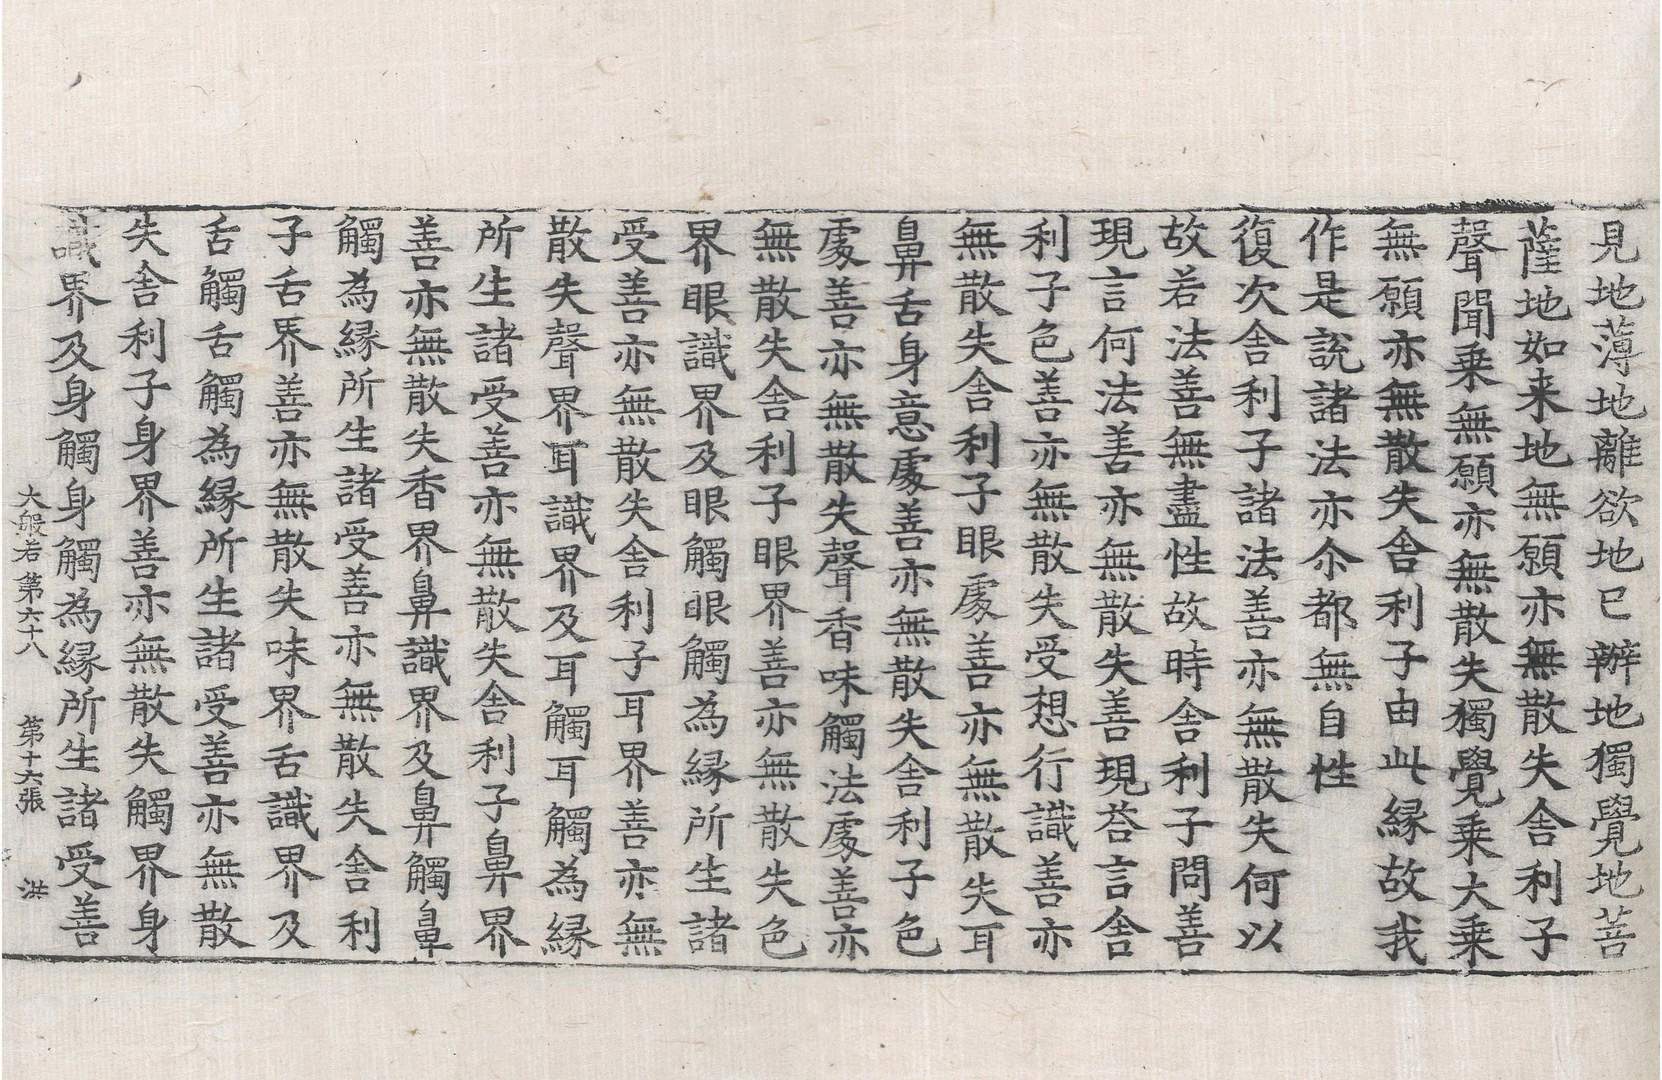 見地薄地離欲地已辦地獨覺地菩
薩地如来地無願亦無散失舍利子
聲聞乗無願亦無散失獨覺乗大乗
無願亦無散失舍利子由此縁故我
作是說諸法亦尒都無自性
復次舍利子諸法善亦無散失何以
故若法善無盡性故時舍利子問善
現言何法善亦無散失善現荅言舍
利子色善亦無散失受想行識善亦
無散失舍利子眼處善亦無散失耳
鼻舌身意處善亦無散失舍利子色
處善亦無散失聲香味觸法處善亦
無散失舍利子眼界善亦無散失色
界眼識界及眼觸眼觸為縁所生諸
受善亦無散失舍利子耳界善亦無
散失聲界耳識界及耳觸耳觸為縁
所生諸受善亦無散失舍利子鼻界
善亦無散失香界鼻識界及鼻觸鼻
觸為縁所生諸受善亦無散失舍利
子舌界善亦無散失味界舌識界及
舌觸舌觸為縁所生諸受善亦無散
失舍利子身界善亦無散失觸界身
識界及身觸身觸為縁所生諸受善
大般若第六十八 第十六張 洪